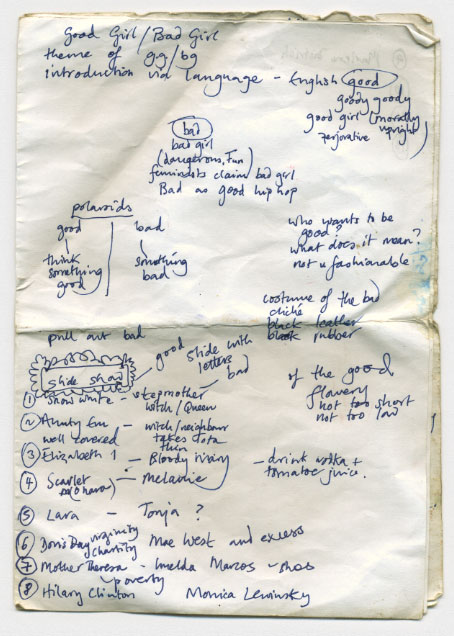 Good Girl / Bad Girl
theme of gg/bg
introduction via language - English good
goody goody
good girl (morally upright)
perjorative
bad
bad girl
(dangerous, Fun)
feminists claim bad girl
Bad as good hip hop
polaroids
good bad
think something good
something bad
who wants to be good?
what does it mean?
not u fashionable
costume of the bad
cliché
black leather
black rubber
pull out bad
good slide with letters
bad
slide show
of the good
flowery
not too short
not too low
① Snow White - stepmother
witch/Queen
② Aunty Em - witch/neighbour
well covered takes Toto
thin
③ Elizabeth 1 - Bloody Mary - drink vodka +
tomatoe juice.
④ Scarlet - Melanie
(O'hara)
⑤ Lara - Tonja ?
⑥ Doris Day virginity Mae West and excess
chastity
⑦ Mother Theresa - Imelda Marcos - shoes
poverty
⑧ Hilary Clinton Monica Lewinsky